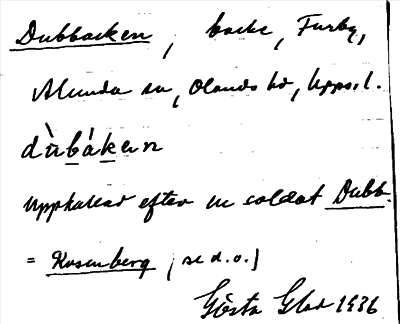 Dubbacken, backe, Furby,
Alunda sn, Olands hd, Uppsl.
dùbáken
Uppkallad efter en soldat Dubb.
= Rosenberg, se d.o.]
Gösta Glad 1936